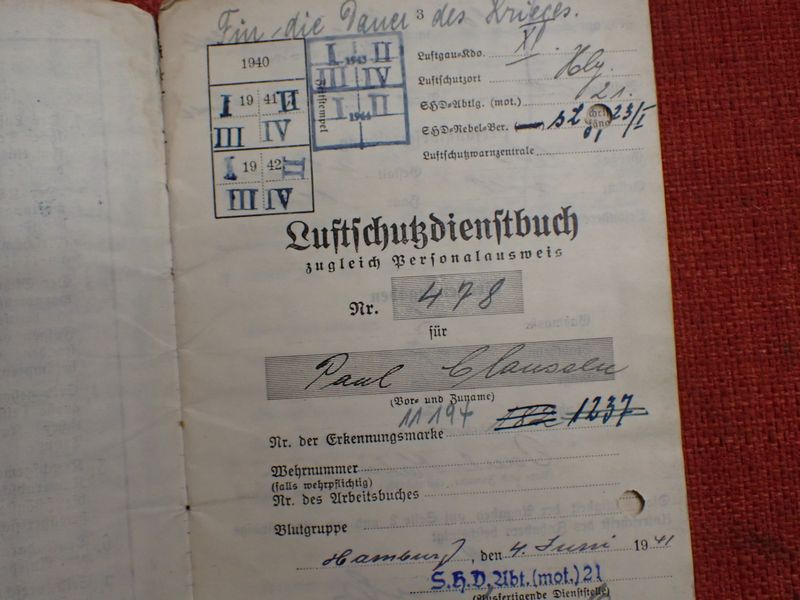 Für die Dauer des Krieges.
3
1940
I 19 41 II
III IV
I 19 42 II
III IV
I 1943 II
III IV
I 1944 II
Luftgau-Kdo. XI.
Luftschutzort Hbg.
SHD-Abtlg. (mot.) 21.
SHD-Nebel-Ber. 23/I
Luftschutzwarnzentrale
Luftschutzdienstbuch
zugleich Personalausweis
Nr. 478
für
Paul Claussen
(Vor- und Zuname)
Nr. der Erkennungsmarke 11194 182 1237
Wehrnummer
(falls wehrpflichtig)
Nr. des Arbeitsbuches
Blutgruppe
Hamburg, den 4. Juni 1941
S.H.D. Abt. (mot.) 21
(Ausfertigende Dienststelle)